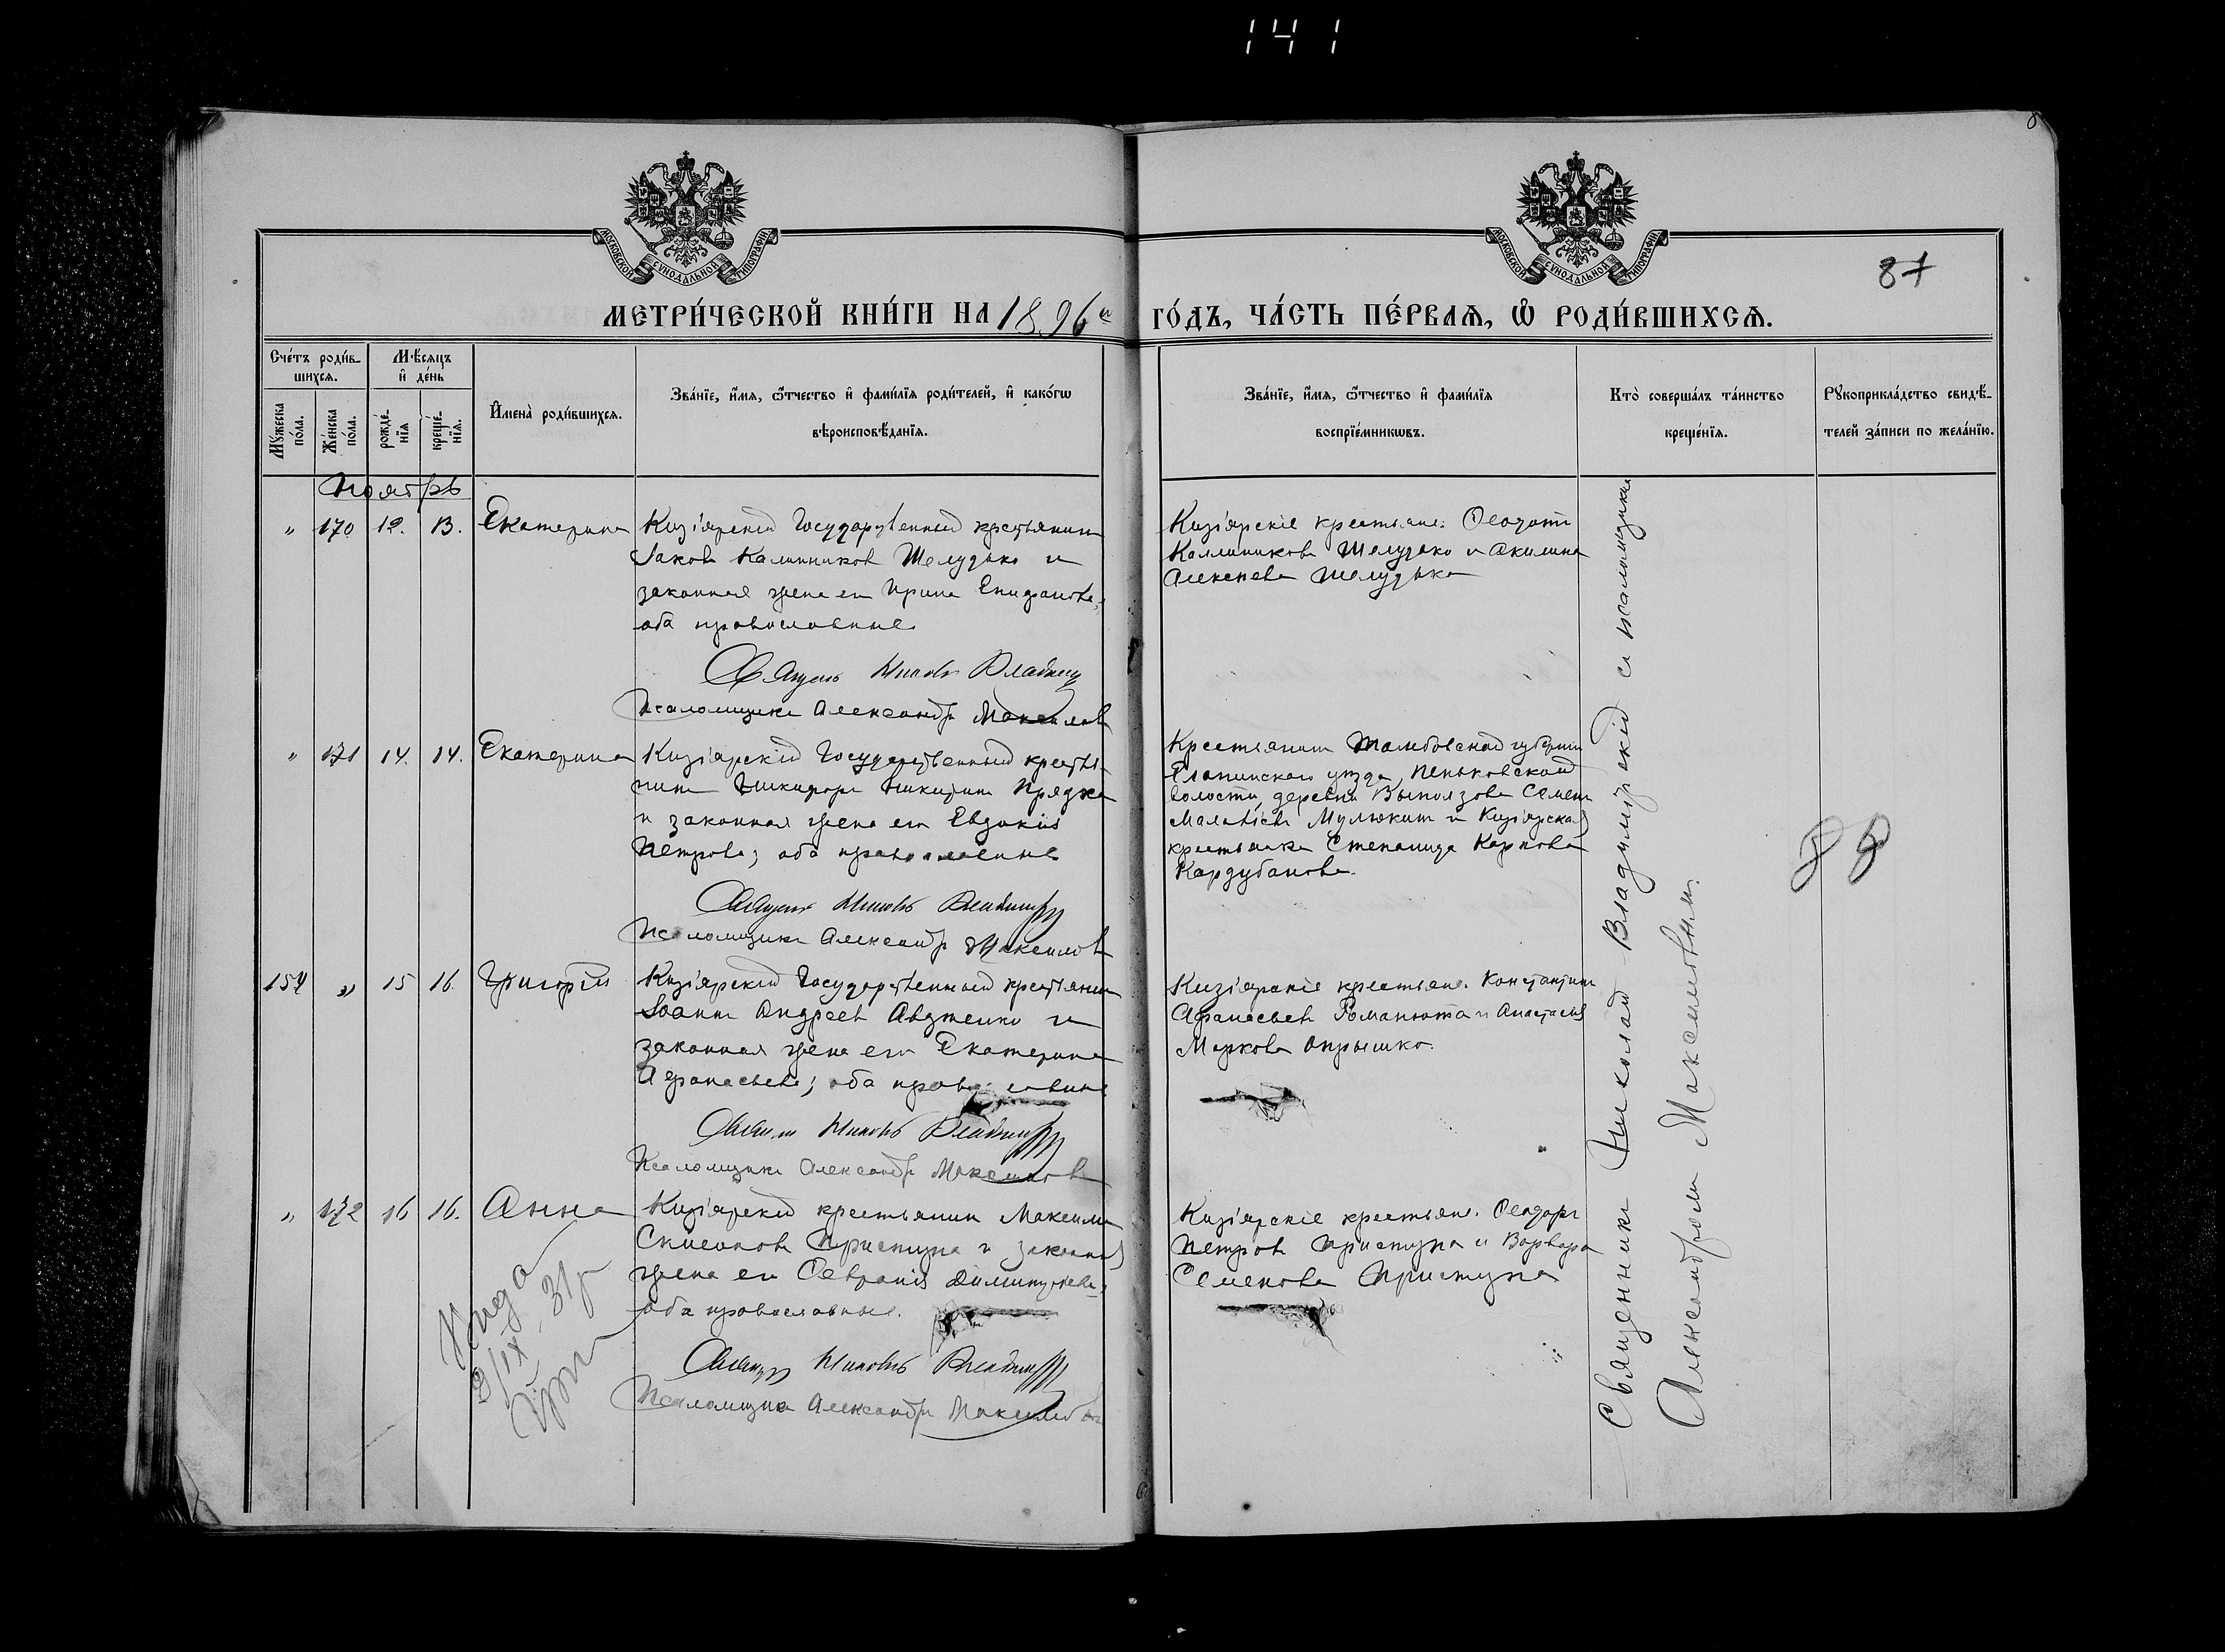 141
МОСКОВСКОЙ СѴНОДАЛЬНОЙ ТИПОГРАФИИ
МОСКОВСКОЙ СѴНОДАЛЬНОЙ ТИПОГРАФИИ
87
МЕТРИ́ЧЕСКОЙ КНИ́ГИ НА 1896й ГО́ДЪ, ЧА́СТЬ ПЕ́РВАѦ, Ѡ РОДИ́ВШИХСѦ.
Сче́тъ роди́в-
шихсѧ.
Мѣ́сяцъ
и҆ де́нь
Мꙋ́жеска
по́ла.
Же́нска
по́ла.
рожде́-
нїѧ
креще́-
нїѧ.
И҆мена̀ роди́вшихсѧ.
Зва́нїе, и҆́мѧ, ѻ҆́тчество и҆ фами́лїѧ роди́телей, и҆ како́гѡ
вѣроисповѣ́данїѧ.
Зва́нїе, и҆́мѧ, ѻ҆́тчество и҆ фами́лїѧ
воспрїе́мникѡвъ.
Кто̀ соверша́лъ та́инство
креще́нїѧ.
Рꙋкоприкла́дство свидѣ́-
телей за́писи по жела́нїю.
Ноябрь
" 170 12. 13. Екатерина
Кизіярскій Государственный крестьянинъ
Іаковъ Калинниковъ Шелудько и
законная жена его Ирина Епифанова,
оба православные
Священ Никол Владимир
Псаломщикъ Александръ Максимовъ
Кизіярскіе крестьяне: Ѳеодотъ
Каллиниковъ Шелудько и Акилина
Алексеева Шелудько
" 171 14. 14. Екатерина
Кизіярскій Государственный крестья-
нинъ Никифоръ Никитинъ Прядка
и законная жена его Евдокія
Петрова; оба православные
Священ Никол Владимир
Псаломщикъ Александръ Максимовъ
Крестьянинъ Тамбовской губерніи
Елатинскаго уѣзда, Пеньковской
волости, деревни Выползова Семенъ
Мулюкинъ и Кизіярская
крестьянка Степанида Карпова
Кардубанова.
88
154 " 15 16 Григорій
Кизіярскій Государственный крестьянинъ
Іоаннъ Андреевъ Авдтенко и
законная жена его Екатерина
Афанасьева; оба православные
Священ Никол Владимир
Псаломщикъ Александръ Максимовъ
Кизіярскіе крестьяне: Константинъ
Афанасьевъ Романюта и Анастасія
Маркова Опрышко.
" 172 16 16. Анна
Кизіярскій крестьянинъ Максимъ
Приступа и законная
жена его Димитріева,
оба православные.
Священ Никол Владимир
Псаломщикъ Александръ Максимовъ
Кизіярскіе крестьяне: Ѳеодоръ
Петровъ Приступа и Варвара
Семенова Приступа
Священникъ Николай Владимірскій съ псаломщикомъ
Александромъ Максимовымъ.